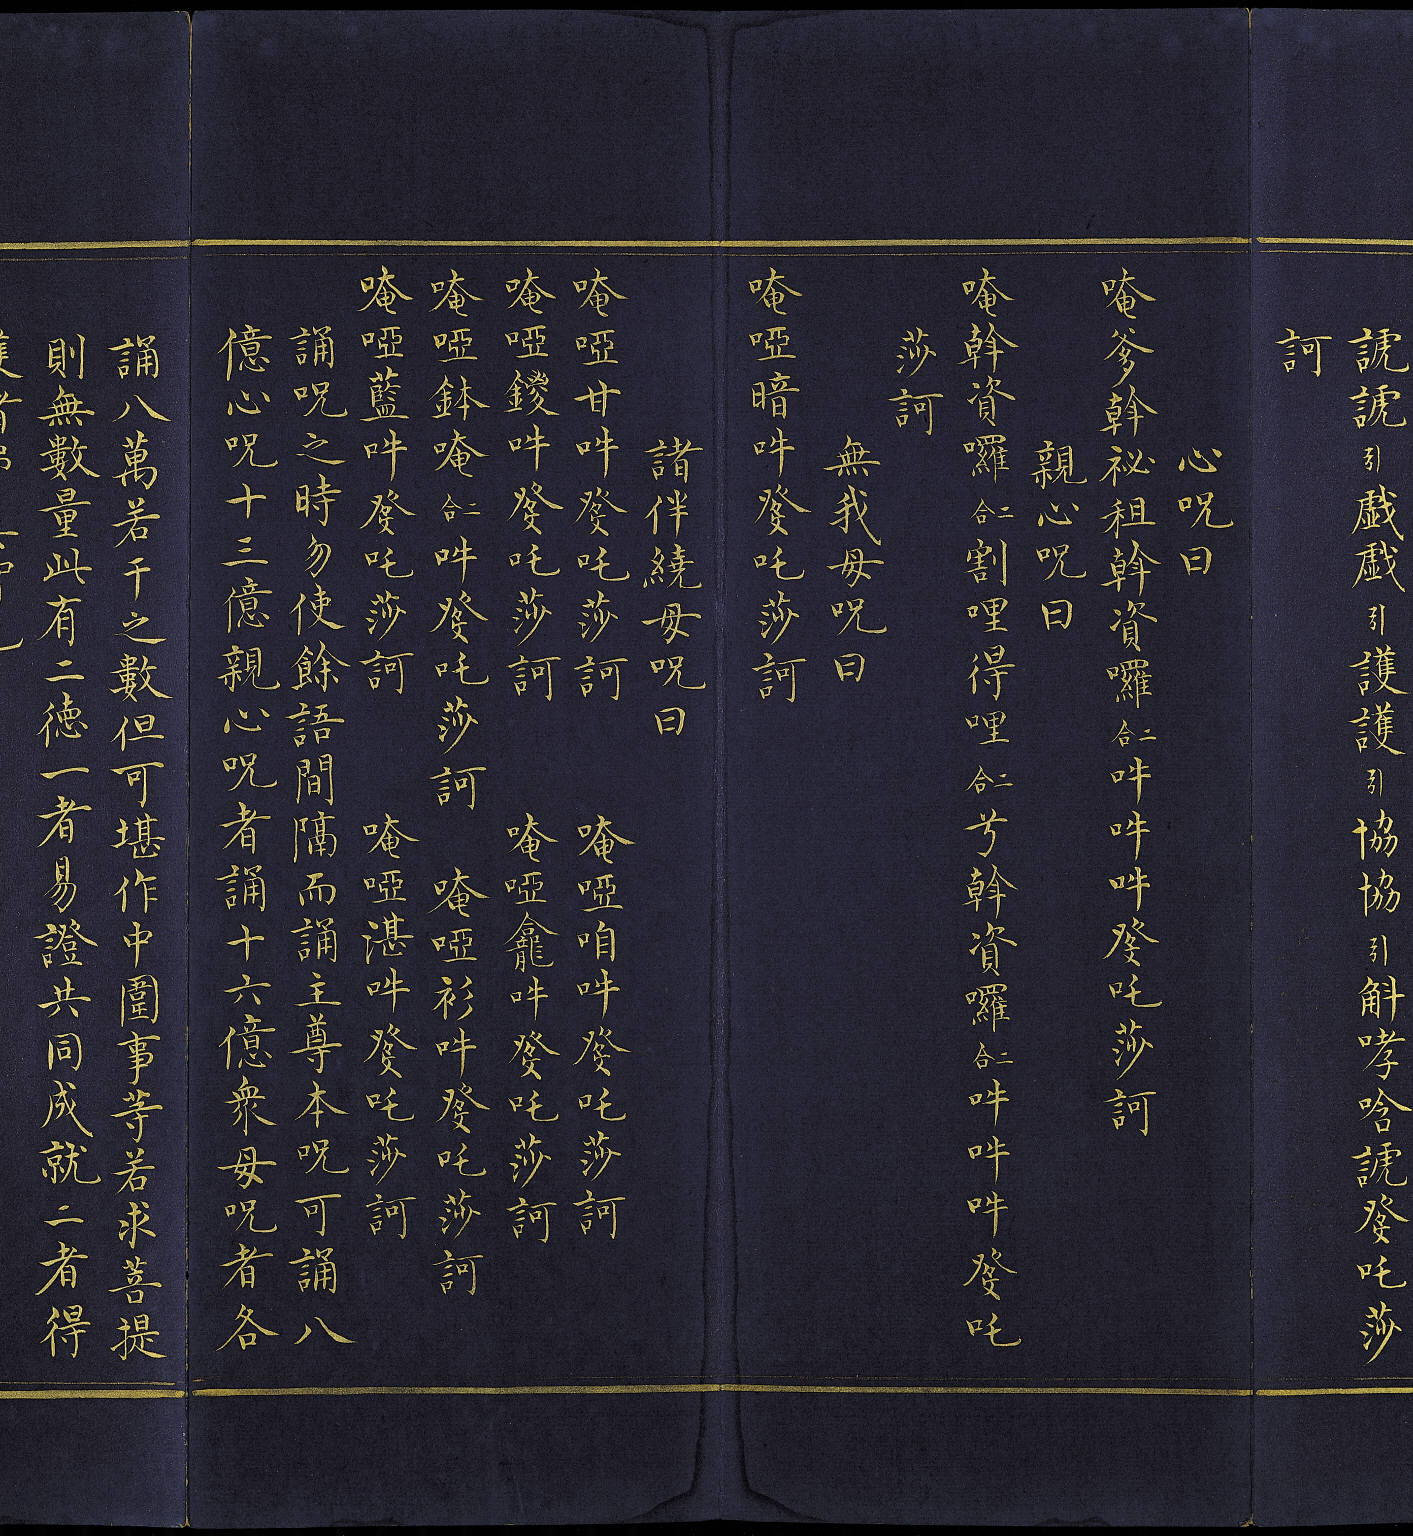 謕謕引戯戯引護護引協協引斛哮唅謕發吒莎
訶
心呪曰
唵爹斡祕租斡資囉二合吽吽吽發吒莎訶
親心呪曰
唵斡資囉二合割哩得哩二合兮斡資囉二合吽吽吽發吒
莎訶
無我母呪曰
唵啞暗吽發吒莎訶
諸伴繞母呪曰
唵啞甘吽發吒莎訶 唵啞咱吽發吒莎訶
唵啞鑁吽發吒莎訶 唵啞龕吽發吒莎訶
唵啞鉢唵二合吽發吒莎訶 唵啞衫吽發吒莎訶
唵啞藍吽發吒莎訶 唵啞湛吽發吒莎訶
誦呪之時勿使餘語間隔而誦主尊本呪可誦八
億心呪十三億親心呪者誦十六億衆母呪者各
誦八萬若干之數但可堪作中圍事等若求菩提
則無數量此有二德一者易證共同成就二者得